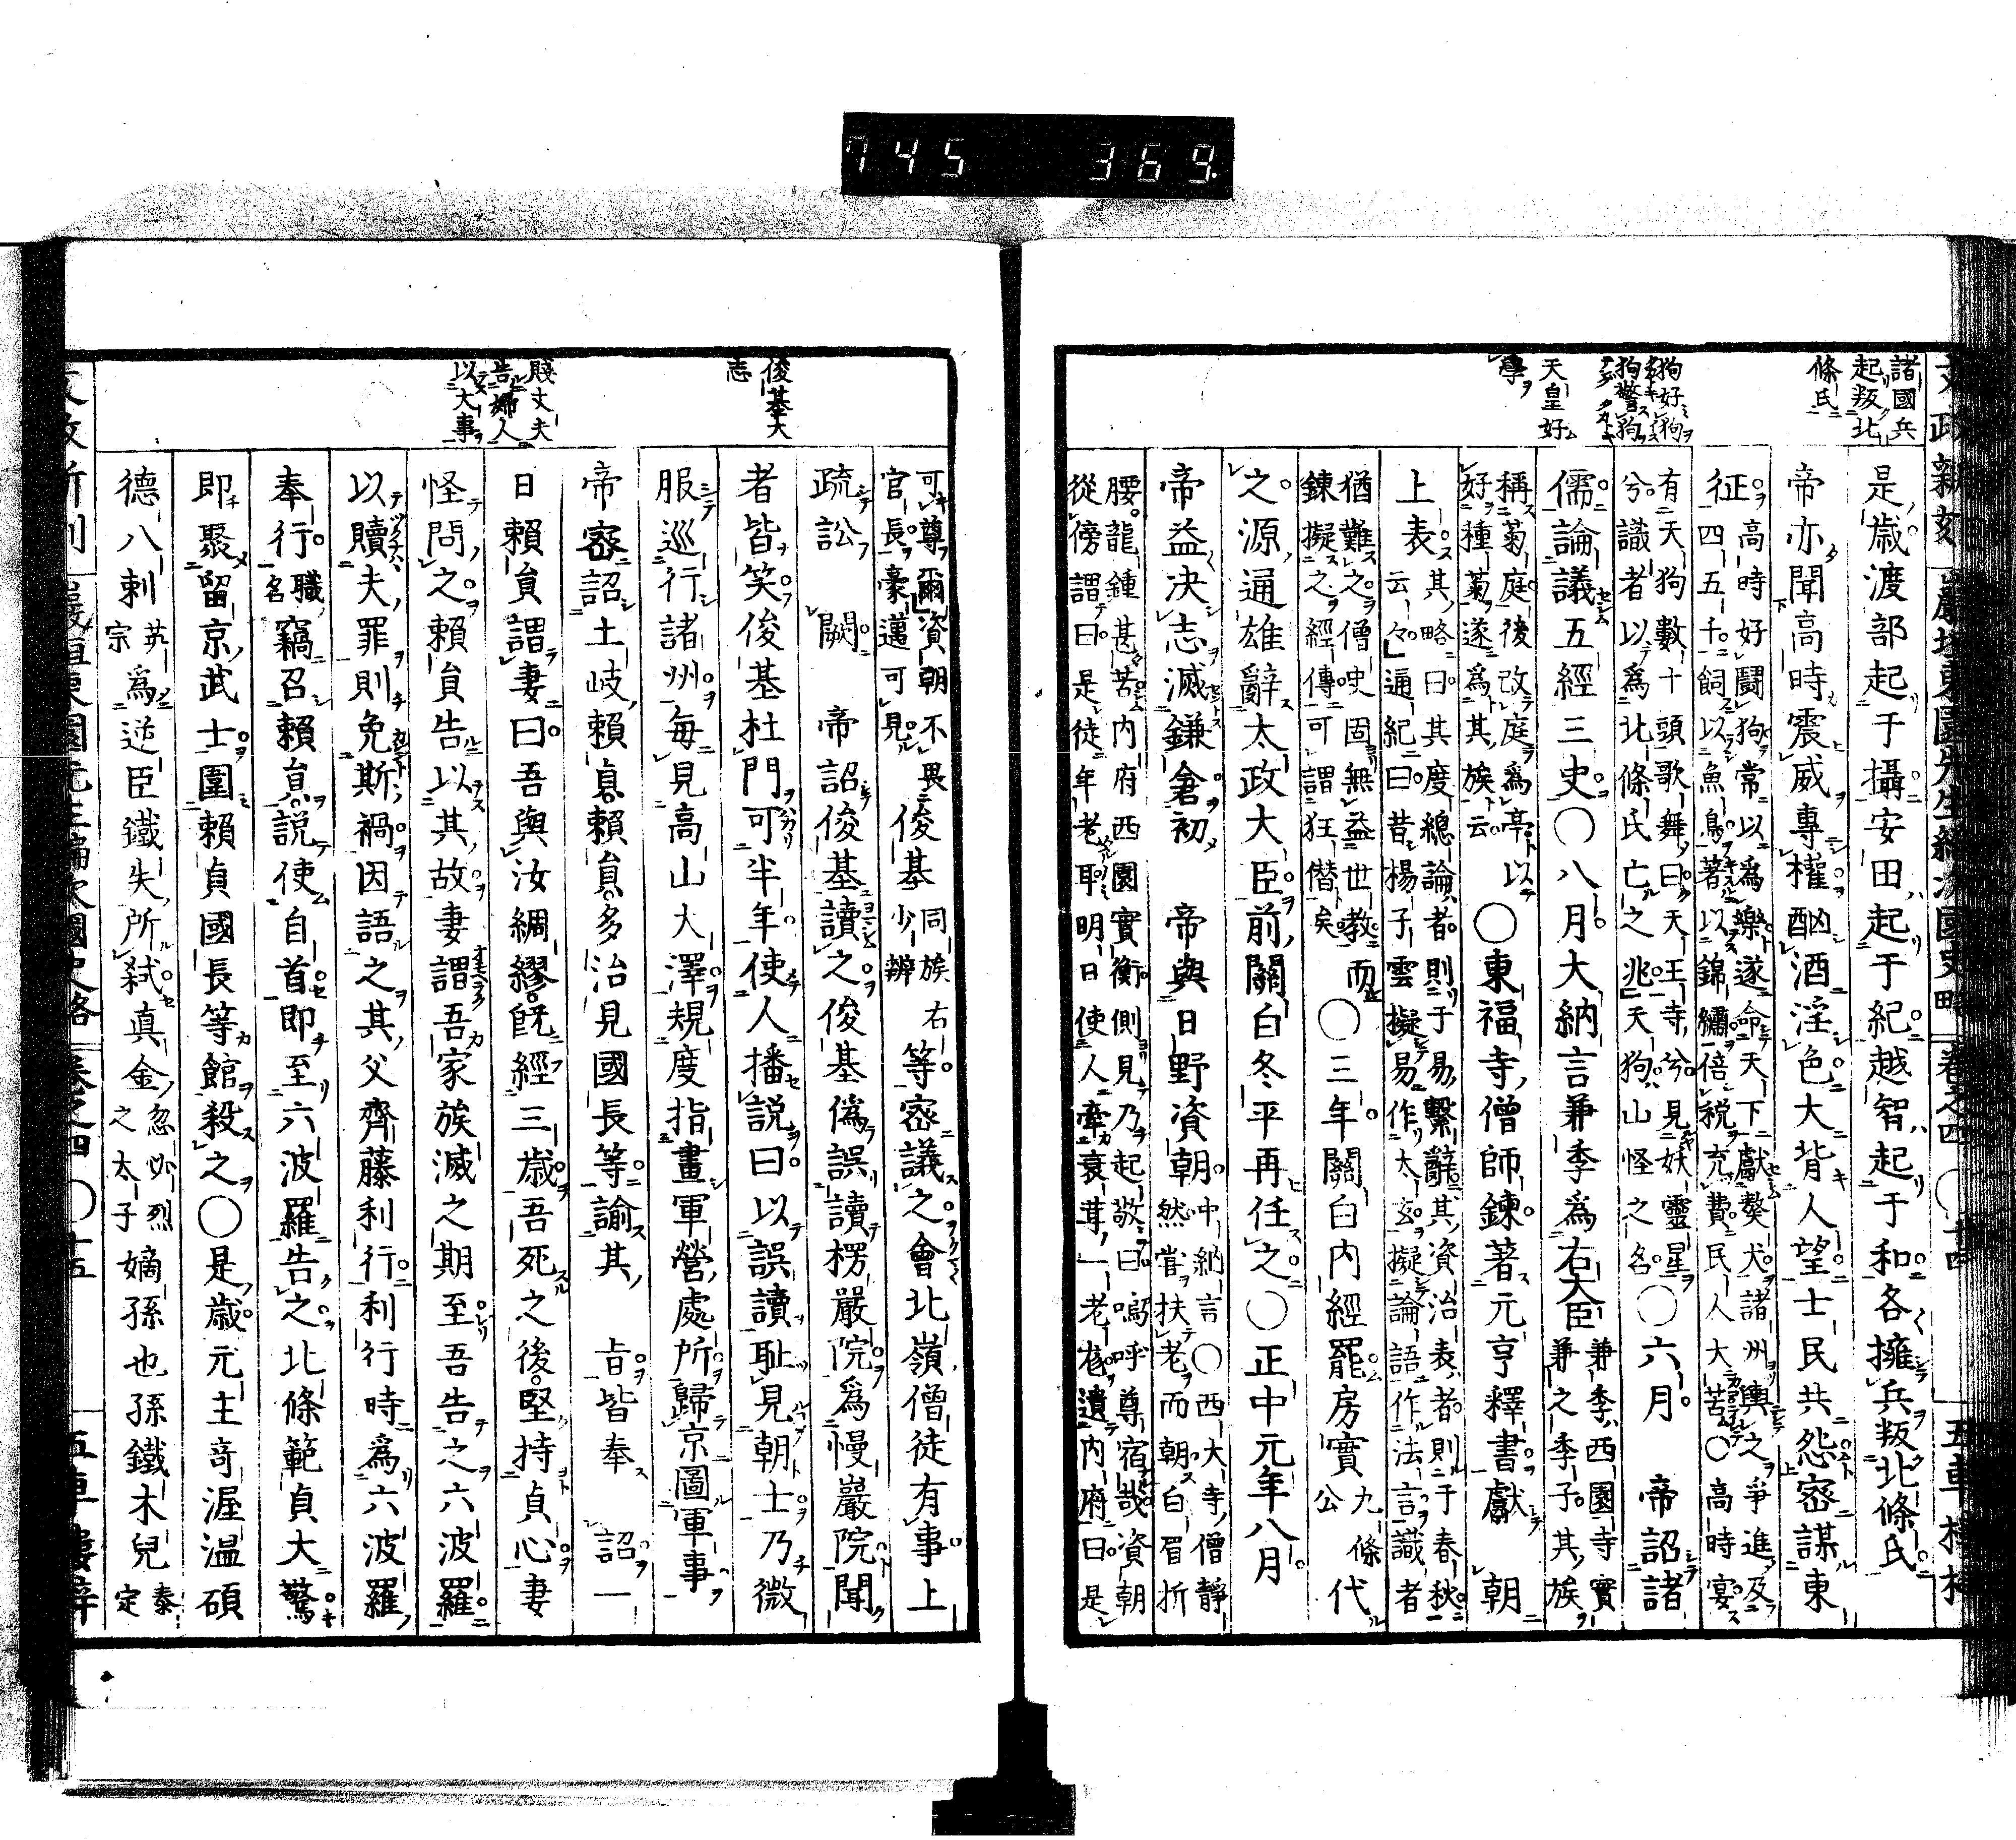 745 369
諸國兵
起叛北
條氏
狗好狗
狗警狗
天皇好
學
是歲渡部起于攝安田起于紀越智起于和各擁兵叛北條氏
帝亦聞高時震威專權酗酒淫色大背人望士民共怨密謀東
征高時好鬪狗常以爲樂遂命天下獻獒犬諸州輿之爭進及
四五千飼以魚鳥著以錦繡倍税充費民人大苦〇高時宴
有天狗數十頭歌舞曰天王寺兮見妖靈星
兮識者以爲北條氏亡之兆天狗山怪之名〇六月 帝詔諸
儒論議五經三史〇八月大納言兼季爲右大臣兼季西園寺實
兼之季子其族
稱菊庭後改庭爲亭以
好種菊遂爲其族云〇東福寺僧師鍊著元亨釋書獻 朝
上表其略曰其度總論者則于易繫辭其資治表者則于春秋
云々通紀曰昔楊子雲擬易作太玄擬論語作法言識者
猶難之僧史固無益世教而
鍊擬之經傳可謂狂僭矣〇三年關白内經罷房實九條代
公
之源通雄辭太政大臣前關白冬平再任之〇正中元年八月
帝益决志滅鎌倉初 帝與日野資朝中納言〇西大寺僧靜
然嘗扶老而朝白眉折
腰龍鍾甚苦内府西園實衡側見乃起敬曰嗚呼尊宿哉資朝
從傍謂曰是徒年老耶明日使人牽衰茸一老尨遺内府曰是
俊基大
志
賤丈夫
告婦人
以大事
可尊爾資朝不畏
官長豪邁可見俊基同族
少辨右等密議之會北嶺僧徒有事上
疏訟 闕 帝詔俊基讀之俊基僞誤讀楞嚴院爲慢嚴院聞
者皆笑俊基杜門可半年使人播説曰以誤讀耻見朝士乃微
服巡行諸州每見高山大澤規度指畫軍營處所歸京圖軍事
帝密詔土岐賴貞賴貟多治見國長等諭其 旨皆奉 詔一
日賴貟謂妻曰吾與汝綢繆既經三歲吾死之後堅持貞心妻
怪問之賴貟告以其故妻謂吾家族滅之期至吾告之六波羅
以贖夫罪則免斯禍因語之其父齊藤利行利行時爲六波羅
奉行職
名竊召賴貟説使自首即至六波羅告之北條範貞大驚
即聚留京武士圍賴貞國長等館殺之〇是歲元主竒渥温碩
德八剌英
宗爲逆臣鐵失所弑真金忽必烈
之太子嫡孫也孫鐵木兒泰
定